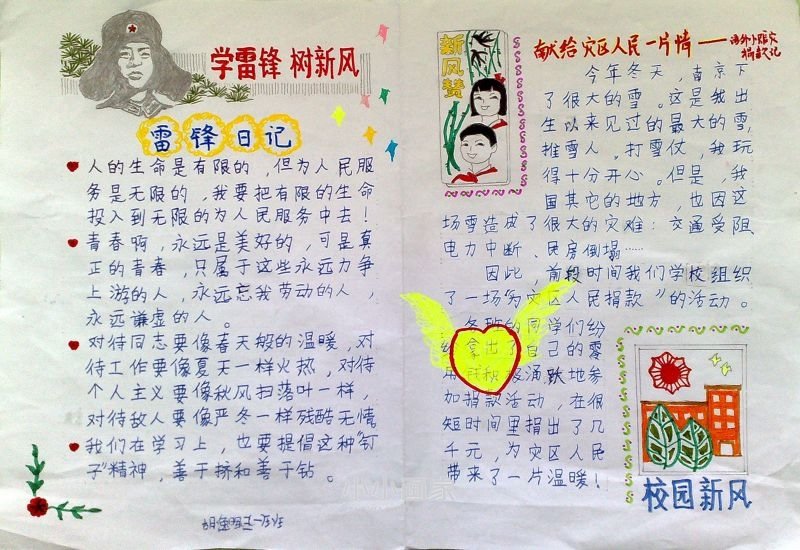 学雷锋 树新风
雷锋日记
人的生命是有限的,但为人民服
务是无限的,我要把有限的生命
投入到无限的为人民服务中去!
青春啊,永远是美好的,可是真
正的青春,只属于这些永远力争
上游的人,永远忘我劳动的人,
永远谦虚的人。
对待同志要像春天般的温暖,对
待工作要像夏天一样火热,对待
个人主义要像秋风扫落叶一样,
对待敌人要像严冬一样残酷无情
我们在学习上,也要提倡这种“钉
子”精神,善于挤和善于钻。
新风赞
献给灾区人民一片情——
捐款记
今年冬天,南京下
了很大的雪。这是我出
生以来见过的最大的雪,
推雪人,打雪仗,我玩
得十分开心。但是,我
国其它的地方,也因这
场雪造成了很大的灾难:交通受阻
电力中断、民房倒塌……
因此,前段时间我们学校组织
了一场“为灾区人民捐款”的活动。
各班的同学们纷
纷拿出了自己的零
用钱积极踊跃地参
加捐款活动,在很
短时间里捐出了几
千元,为灾区人民
带来了一片温暖!
校园新风